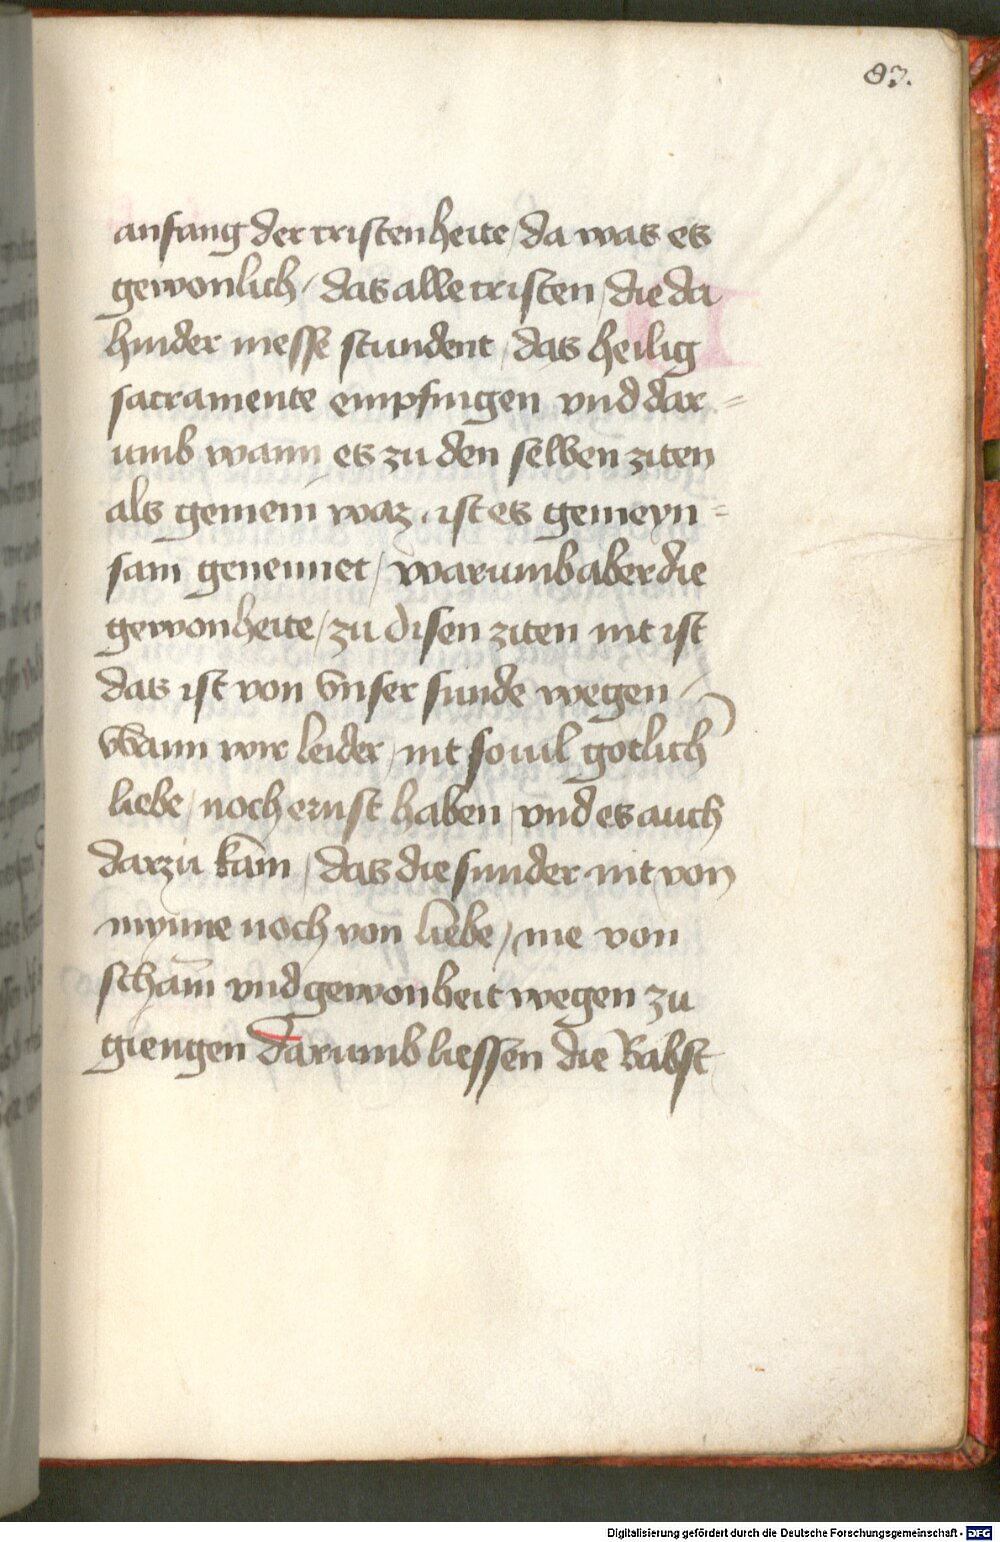 83.
anfang der cristenheite / da was es
gewonlich / das alle cristen / die da
hinder messe stundent / das heilig
sacramente empfingen vnd dar=
umb wann es zu den selben ziten
als gemein waz / ist es gemeyn=
sam genennet / warumb aber die
gewonheite / zu disen ziten nit ist
das ist von vnser sunde wegen /
Wann wir leider / nit souil gotlich
liebe / noch ernst haben / vnd es auch
darzu kam / das die sunder nit von
mynne noch von liebe / me von
scham vnd gewonheit wegen zu
giengen Darumb liessen die Babst
Digitalisierung gefördert durch die Deutsche Forschungsgemeinschaft - DFG